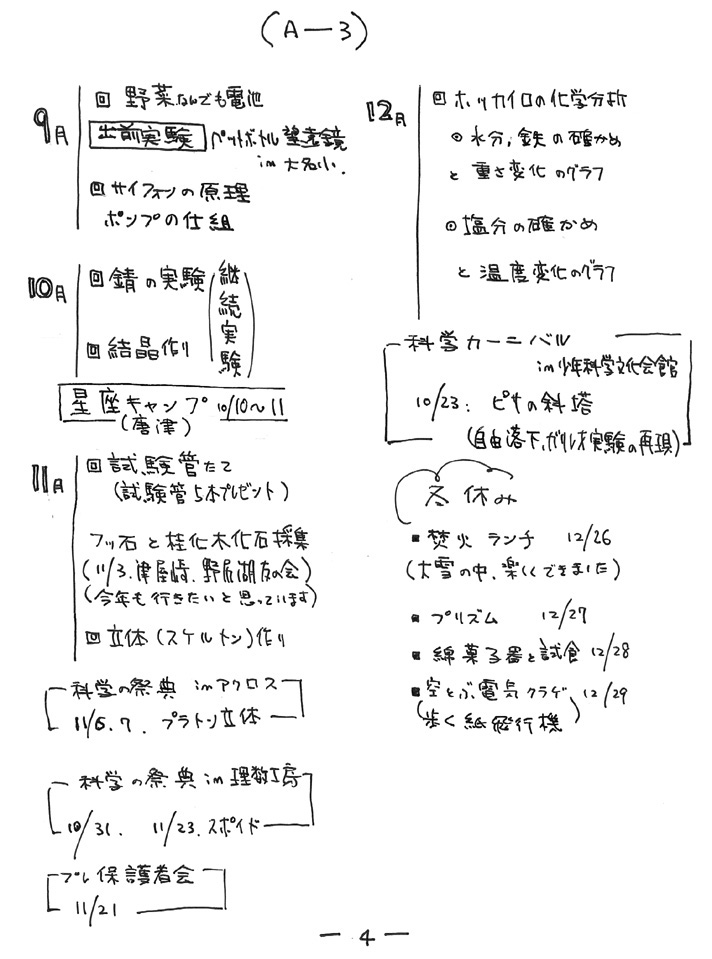 (A—3)
9月
回 野菜なんでも電池
出前実験 ペットボトル望遠鏡
in 大名小.
回 サイフォンの原理
ポンプの仕組
10月
回 錆の実験
回 結晶作り
(継続実験)
星座キャンプ 10/10〜11
(唐津)
11月
回 試験管たて
(試験管5本プレゼント)
フッ石と桂化木化石採集
(11/3.津屋崎、野尻湖友の会)
(今年も行きたいと思っています)
回 立体(スケルトン)作り
科学の祭典 inアクロス
11/6.7. プラトン立体
科学の祭典 in 理数工房
10/31. 11/23.スポイド
プレ保護者会
11/21
12月
回 ホッカイロの化学分析
⊙ 水分,鉄の確かめ
と 重さ変化のグラフ
⊙ 塩分の確かめ
と 温度変化のグラフ
科学カーニバル
in少年科学文化会館
10/23: ピサの斜塔
(自由落下、ガリレオ実験の再現)
冬休み
▪ 焚火ランチ 12/26
(大雪の中、楽しくできました)
▪ プリズム 12/27
▪ 綿菓子器と試食 12/28
▪ 空とぶ電気クラゲ 12/29
(歩く紙飛行機)
— 4 —